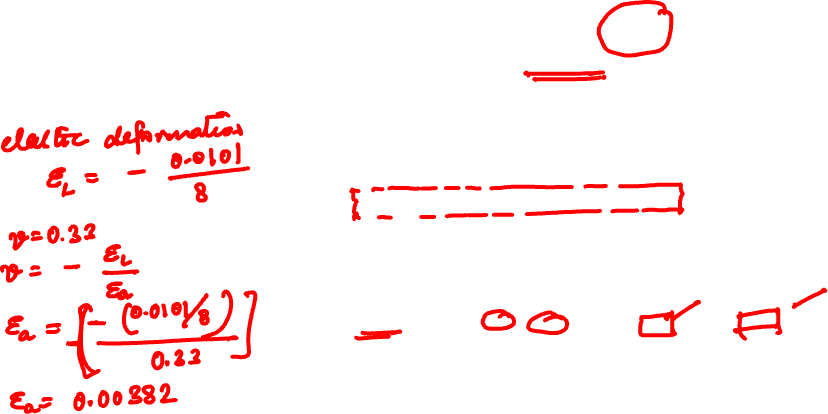 elastic deformation
ε_L = - 0.0101 / 8
ν = 0.33
ν = - ε_L / ε_a
ε_a = - [ - (0.0101/8) / 0.33 ]
ε_a = 0.00382